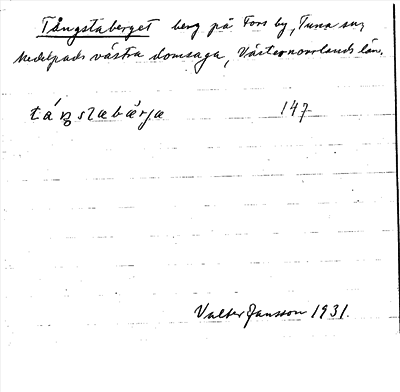 Tångstaberget berg på Fors by, Tuna sn,
Medelpads västra domsaga, Västernorrlands län.
táŋstabärja 147
Valter Jansson 1931.